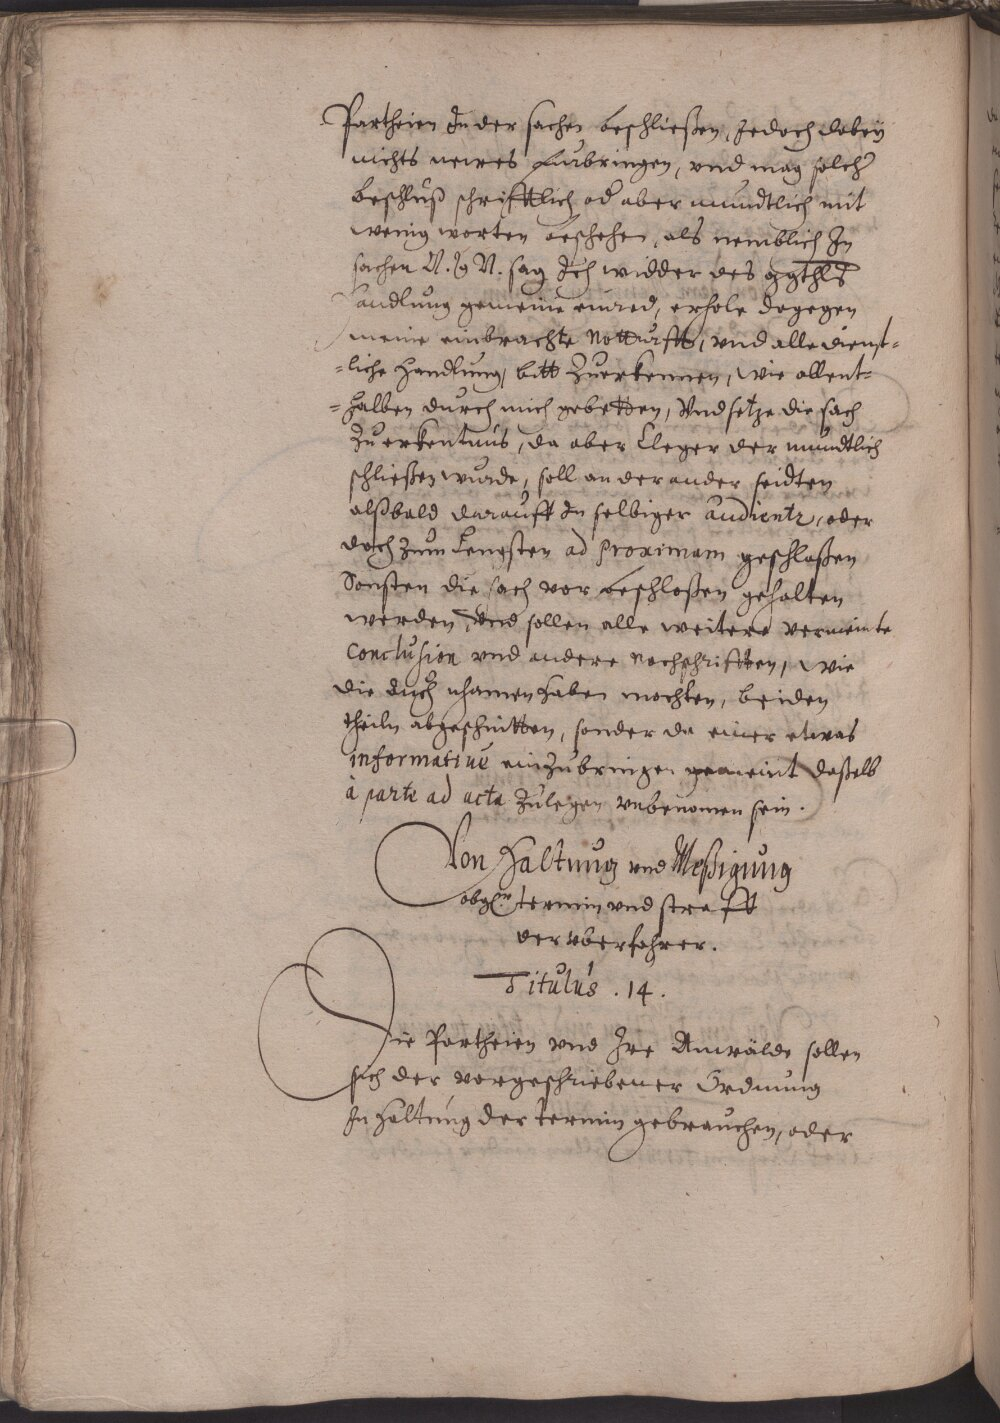 Partheien In der sachen beschließen, Jedoch dabey
nichts newes Furbringen, vnd mag solch
beschluß schrifftlich od aber mundtlich mit
wenig worten beschehen, als nemblich In
sachen N. N. sag Ich widder des ggthls
Handlung gemeine einred, erhole dagegen
meine einbrachte notturfft, vnd alle dienst-
-liche Handlung, bitt Zuerkennen, wie allent-
-halben durch mich gebetten, Vnd setze die sach
Zu erkentnus, da aber Cleger der mundtlich
schließen wurde, soll an der ander seidten
alßbald darauff In selbiger Audientz, oder
doch Zum Lengsten ad proximam geschloßen
Sonsten die sach vor beschloßen gehalten
werden, Vnd sollen alle weitere vermeinte
Conclusion vnd andere nachschrifften, wie
die auch nhamen haben mochten, beiden
theiln abgeschnitten, sonder da einer etwas
informative einzubringen gemeint daßelb
à parte ad acta Zulegen vnbenomen sein.
Von Haltung vnd Meßigung
obgln termin vnd straff
der vberfahrer.
Titulus .14.
Die Partheien vnd Ire Anwälde sollen
sich der vorgeschriebener Ordnung
In Haltung der termin gebrauchen, oder